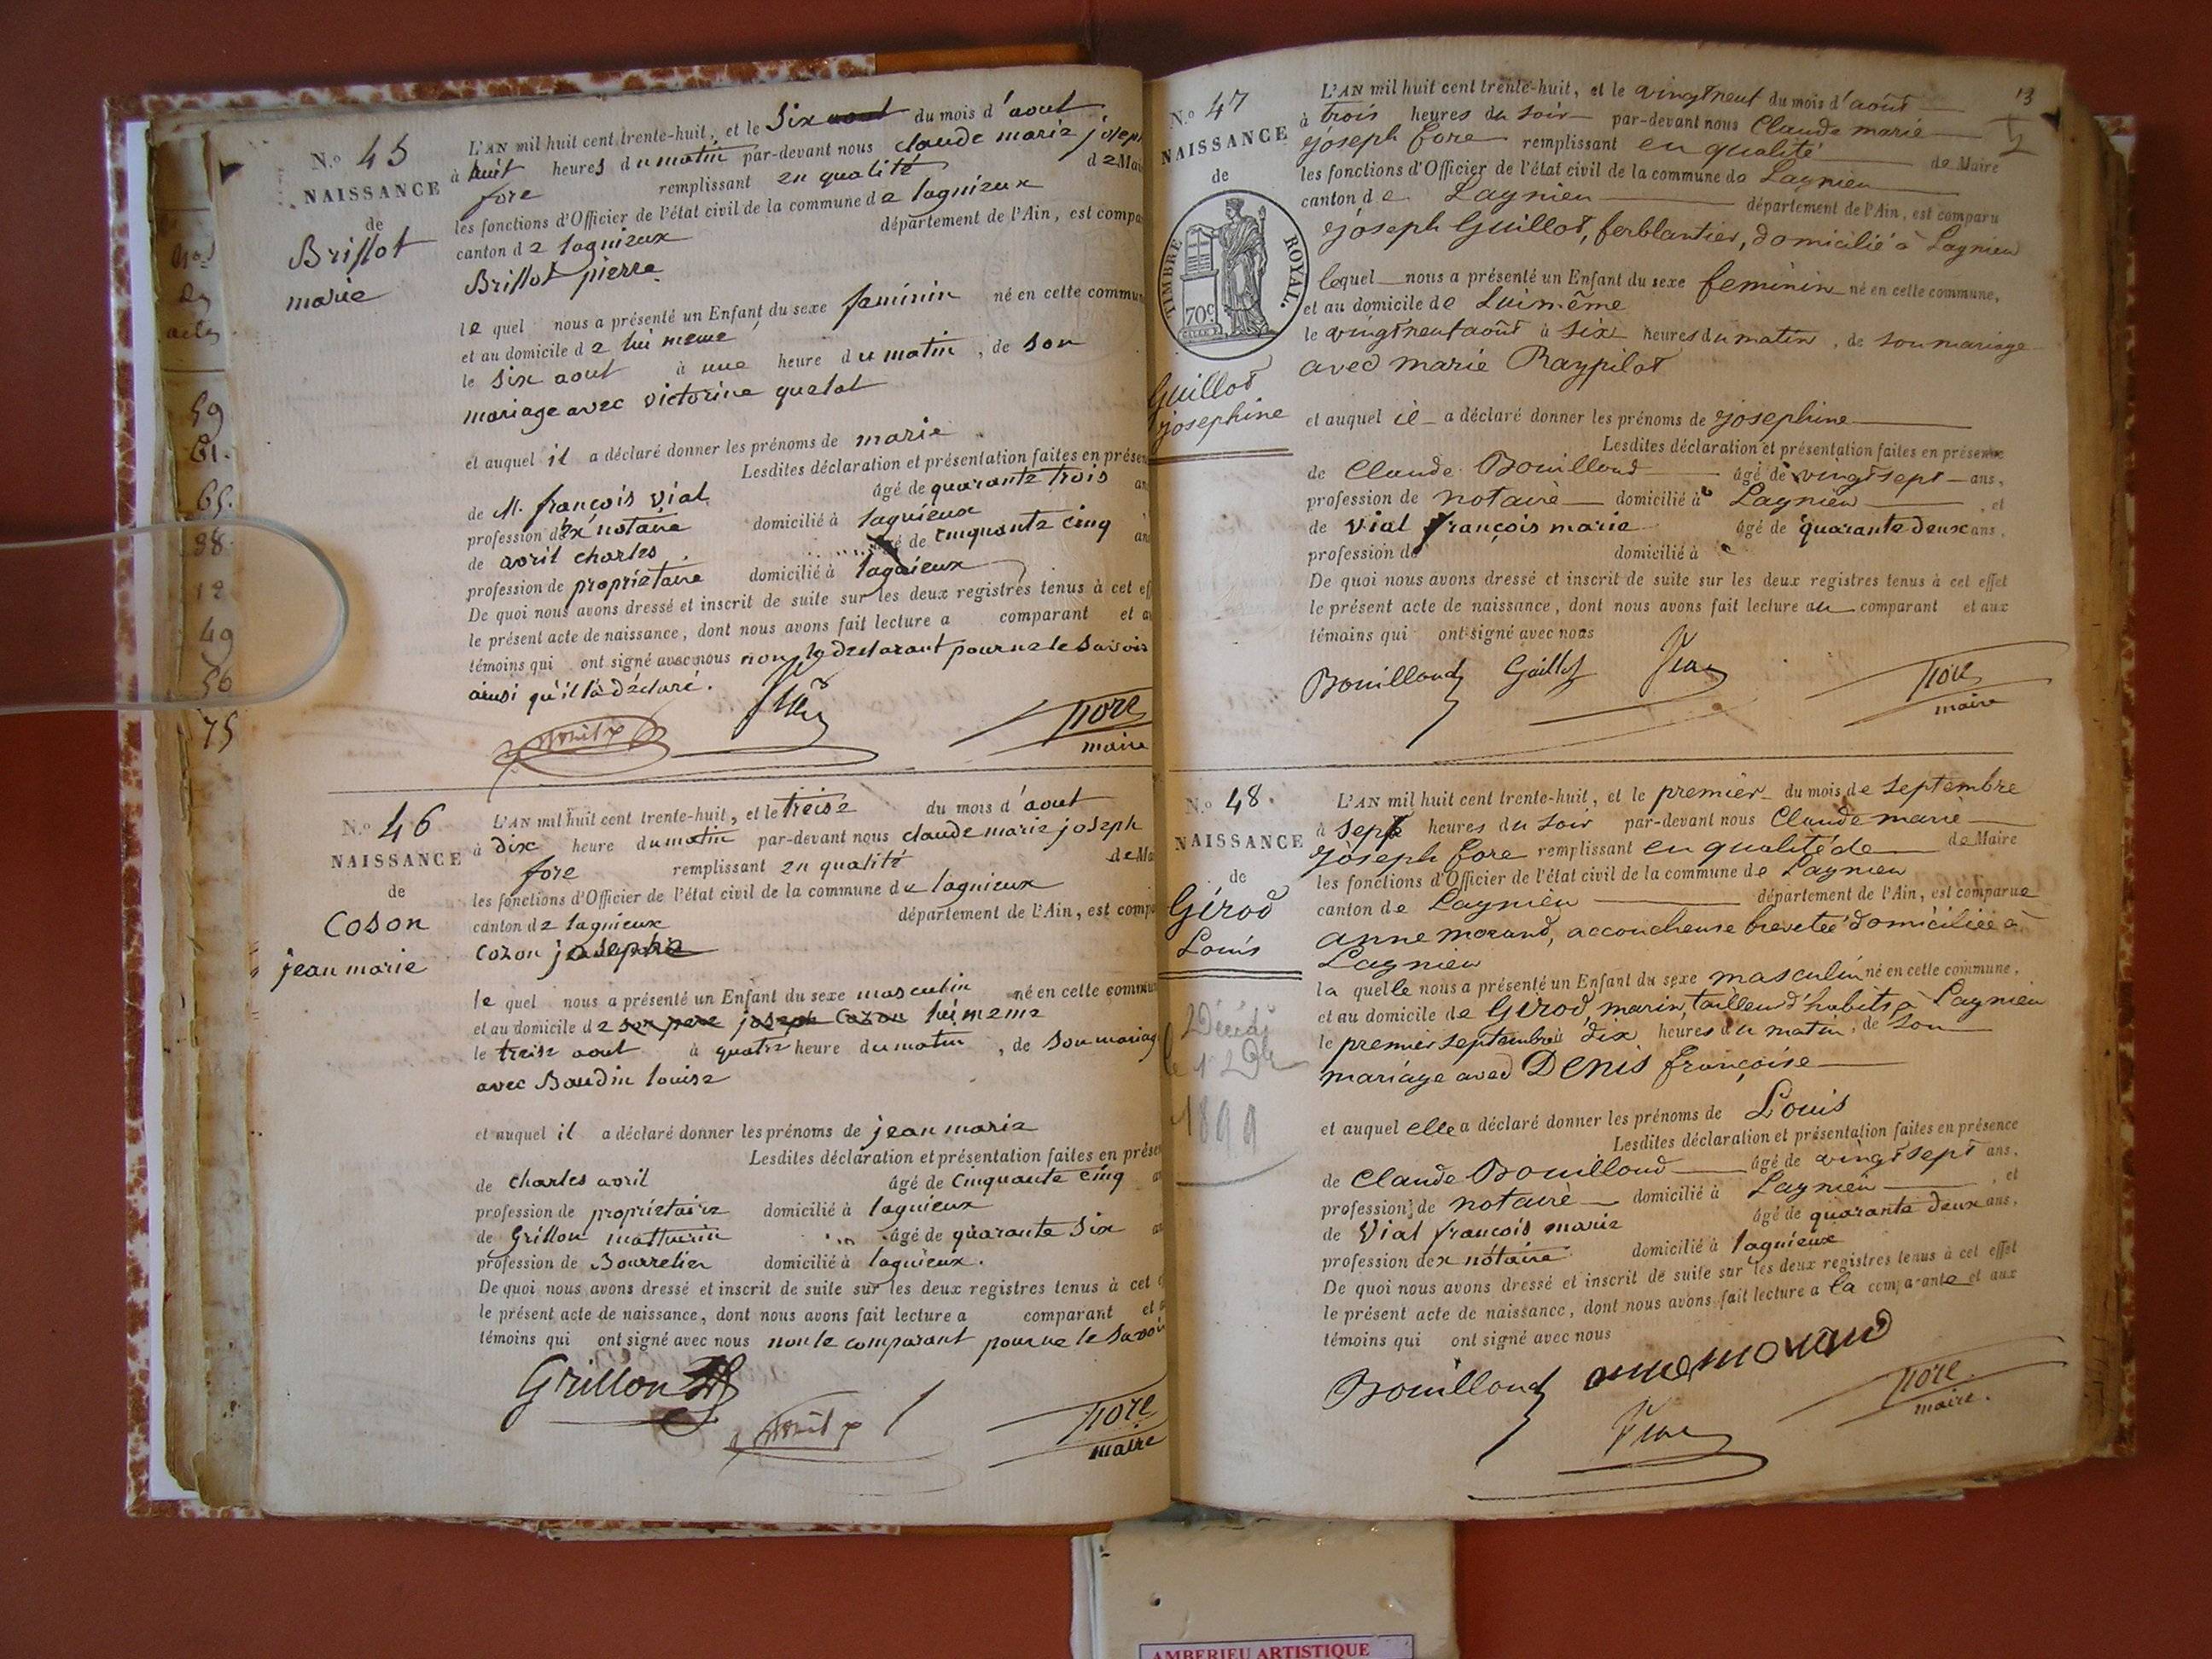 N.º 45
NAISSANCE
de
Brissot
marie
L'AN mil huit cent trente-huit, et le Six aout du mois d'aout
à huit heures du matin par-devant nous claude marie joseph
fore remplissant en qualité de Mai
les fonctions d'Officier de l'état civil de la commune de lagnieux
canton de lagnieux département de l'Ain, est compa
Brissot pierre
le quel nous a présenté un Enfant du sexe feminin né en cette commun
et au domicile de lui meme
le six aout à une heure du matin, de son
mariage avec victorine quetat
et auquel il a déclaré donner les prénoms de marie
Lesdites déclaration et présentation faites en présen
de M. françois vial âgé de quarante trois an
profession d'ex notaire domicilié à lagnieux
de avril charles âgé de cinquante cinq an
profession de propriétaire domicilié à lagnieux
De quoi nous avons dressé et inscrit de suite sur les deux registres tenus à cet eff
le présent acte de naissance, dont nous avons fait lecture a comparant et a
témoins qui ont signé avec nous non le declarant pour ne le savoir
ainsi qu'il l'a déclaré.
fore
maire
N.º 46
NAISSANCE
de
Coson
jean marie
L'AN mil huit cent trente-huit, et le treise du mois d'aout
à dix heure du matin par-devant nous claude marie joseph
fore remplissant en qualité de Ma
les fonctions d'Officier de l'état civil de la commune de lagnieux
canton de lagnieux département de l'Ain, est compa
Cozon josephe
le quel nous a présenté un Enfant du sexe masculin né en cette commun
et au domicile de son pere joseph Cozon lui meme
le treise aout à quatre heure du matin, de son mariag
avec Baudin louise
et auquel il a déclaré donner les prénoms de jean marie
Lesdites déclaration et présentation faites en prése
de charles avril âgé de cinquante cinq an
profession de propriétaire domicilié à lagnieux
de Grillon mathurin âgé de quarante six an
profession de Bourrelier domicilié à lagnieux.
De quoi nous avons dressé et inscrit de suite sur les deux registres tenus à cet
le présent acte de naissance, dont nous avons fait lecture a comparant et
témoins qui ont signé avec nous non le comparant pour ne le savoir
Grillon
fore
maire
59
61.
65.
38.
12
49
56
75
13
N.º 47
NAISSANCE
de
TIMBRE ROYAL.
70c
Guillot
josephine
L'AN mil huit cent trente-huit, et le vingt neuf du mois d'août
à trois heures du soir par-devant nous Claude marie
joseph fore remplissant en qualité de Maire
les fonctions d'Officier de l'état civil de la commune de Lagnieu
canton de Lagnieu département de l'Ain, est comparu
joseph Guillot, ferblantier, domicilié à Lagnieu
lequel nous a présenté un Enfant du sexe feminin né en cette commune,
et au domicile de Lui même
le vingt neuf août à six heures du matin, de son mariage
avec marie Raypilot
et auquel il a déclaré donner les prénoms de josephine
Lesdites déclaration et présentation faites en présence
de Claude Bouilloud âgé de vingt sept ans,
profession de notaire domicilié à Lagnieu, et
de vial françois marie âgé de quarante deux ans,
profession de domicilié à
De quoi nous avons dressé et inscrit de suite sur les deux registres tenus à cet effet
le présent acte de naissance, dont nous avons fait lecture au comparant et aux
témoins qui ont signé avec nous
Bouilloud Guillot Vial
fore
maire
N.º 48.
NAISSANCE
de
Girod
Louis
Décédé
le 1 Xbre
1899
L'AN mil huit cent trente-huit, et le premier du mois de septembre
à sept heures du soir par-devant nous Claude marie
joseph fore remplissant en qualité de de Maire
les fonctions d'Officier de l'état civil de la commune de Lagnieu
canton de Lagnieu département de l'Ain, est comparue
anne morand, accoucheuse brevetée domiciliée à
Lagnieu
la quelle nous a présenté un Enfant du sexe masculin né en cette commune,
et au domicile de Girod, marin, tailleur d'habits à Lagnieu
le premier septembre à dix heures du matin, de son
mariage avec Denis françoise
et auquel elle a déclaré donner les prénoms de Louis
Lesdites déclaration et présentation faites en présence
de Claude Bouilloud âgé de vingt sept ans,
profession de notaire domicilié à Lagnieu, et
de Vial françois marie âgé de quarante deux ans,
profession d'ex notaire domicilié à lagnieux
De quoi nous avons dressé et inscrit de suite sur les deux registres tenus à cet effet
le présent acte de naissance, dont nous avons fait lecture a la comparante et aux
témoins qui ont signé avec nous
Bouilloud anne morand
Vial
fore
maire.
AMBERIEU ARTISTIQUE